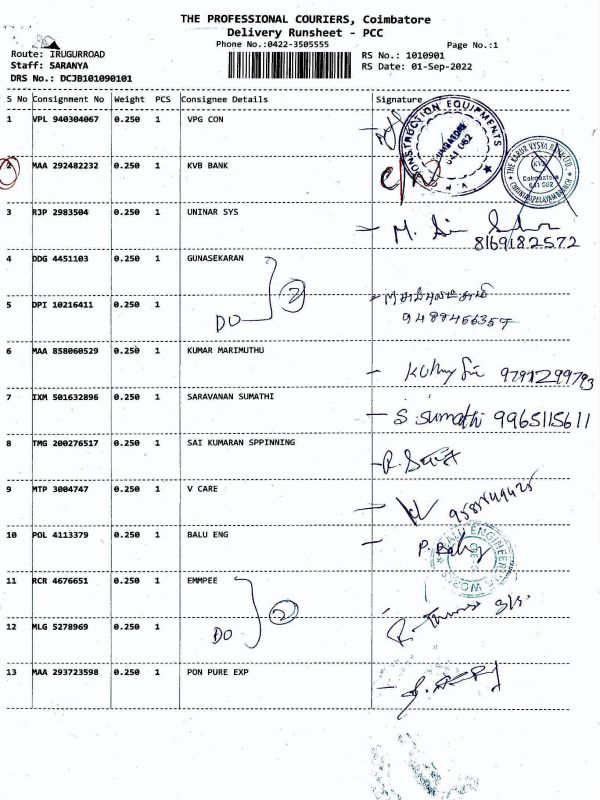 THE PROFESSIONAL COURIERS, Coimbatore
Delivery Runsheet - PCC
Phone No.:0422-3505555
Page No.:1
Route: IRUGURROAD
Staff: SARANYA
DRS No.: DCJB101090101
RS No.: 1010901
RS Date: 01-Sep-2022
S No Consignment No Weight PCS Consignee Details Signature
1 VPL 940304067 0.250 1 VPG CON
CONSTRUCTION EQUIPMENTS
641 062
2 MAA 292482232 0.250 1 KVB BANK
THE KARUR VYSYA BANK LTD.
KVB
Coimbatore
641 062
3 RJP 2983504 0.250 1 UNINAR SYS
M.
8169182572
4 DDG 4451103 0.250 1 GUNASEKARAN
DO 2
5 DPI 10216411 0.250 1
9488466357
6 MAA 858060529 0.250 1 KUMAR MARIMUTHU
9791299793
7 IXM 501632896 0.250 1 SARAVANAN SUMATHI
S Sumathi 9965115611
8 TMG 200276517 0.250 1 SAI KUMARAN SPPINNING
9 MTP 3004747 0.250 1 V CARE
10 POL 4113379 0.250 1 BALU ENG
P. Balu
BALU ENGINEERING WORKS
11 RCR 4676651 0.250 1 EMMPEE
DO 2
12 MLG 5278969 0.250 1
13 MAA 293723598 0.250 1 PON PURE EXP